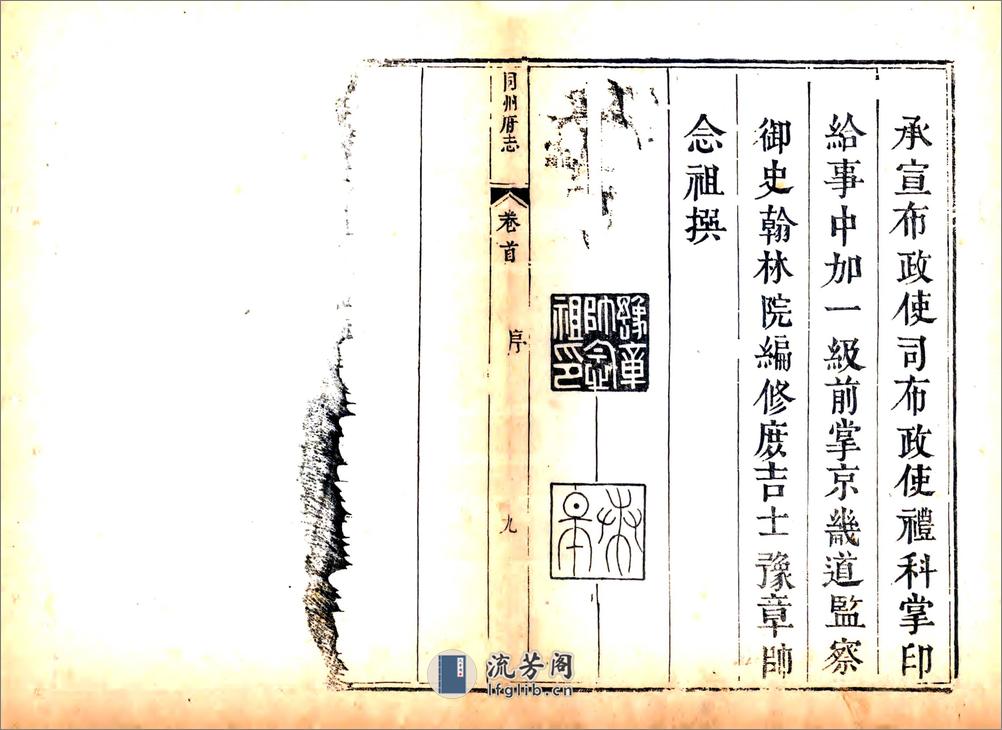 承宣布政使司布政使禮科掌印
給事中加一級前掌京畿道監察
御史翰林院編修庶吉士豫章帥
念祖撰
豫章
帥念
祖印
同州府志
卷首
序
九
流芳阁
lfglib.cn